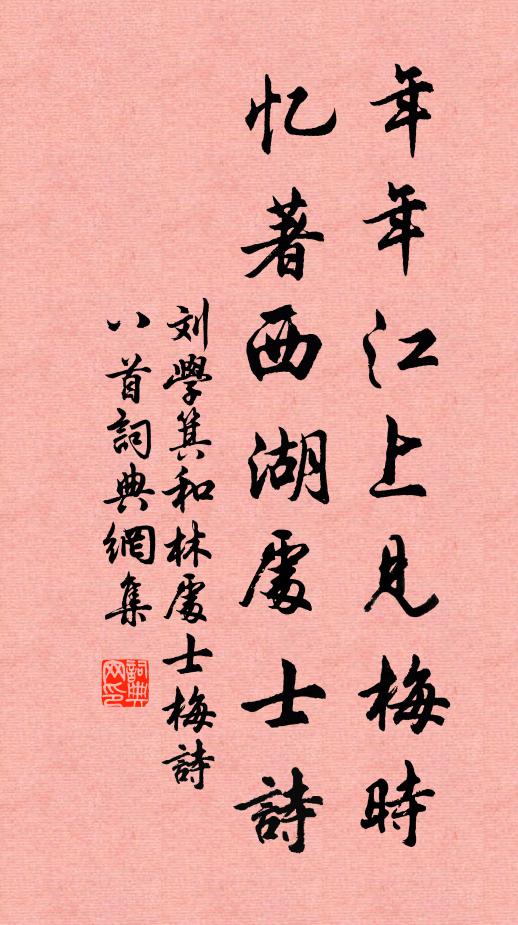 年年江上見梅時
忆著西湖處士詩
刘學箕和林處士梅詩
八首詞典網集
詞典
网印